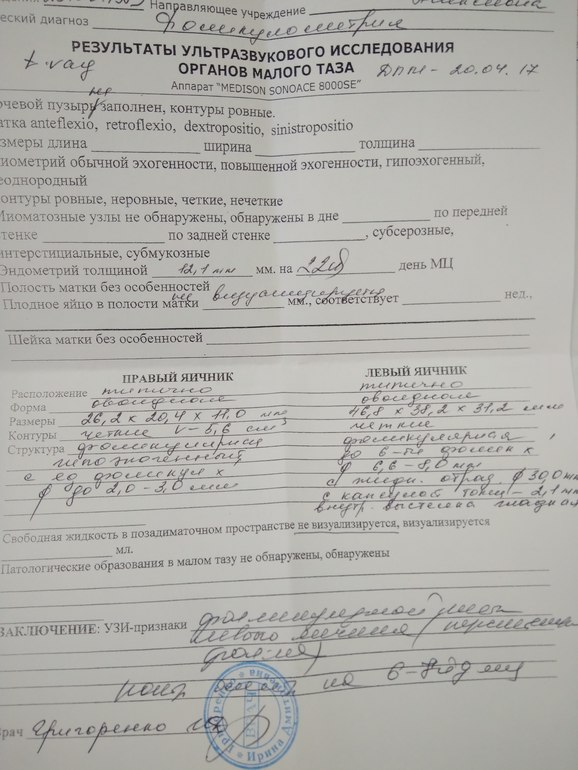 Направляющее учреждение
еский диагноз Фолликулометрия
РЕЗУЛЬТАТЫ УЛЬТРАЗВУКОВОГО ИССЛЕДОВАНИЯ
ОРГАНОВ МАЛОГО ТАЗА
t. vag ДПМ - 20.04.17
Аппарат "MEDISON SONOACE 8000SE"
очевой пузырь не заполнен, контуры ровные.
атка anteflexio, retroflexio, dextropositio, sinistropositio
змеры длина ширина толщина
иометрий обычной эхогенности, повышенной эхогенности, гипоэхогенный,
еоднородный
онтуры ровные, неровные, четкие, нечеткие
Миоматозные узлы не обнаружены, обнаружены в дне по передней
тенке по задней стенке , субсерозные,
интерстициальные, субмукозные
Эндометрий толщиной 12,1 мм мм. на 22й день МЦ
Полость матки без особенностей
Плодное яйцо в полости матки не визуализируется мм., соответствует нед.,
Шейка матки без особенностей
ПРАВЫЙ ЯИЧНИК
Расположение типично
Форма овоидной
Размеры 26,2 x 20,4 x 11,0 мм
Контуры четкие V-5,6 см3
Структура фолликулярная
гипоэхогенный
с ед фолликул x
ф до 2,0-3,0 мм
ЛЕВЫЙ ЯИЧНИК
типично
овоидной
46,8 x 38,2 x 31,2 мм
четкие
фолликулярная,
до 6-ти фоллик x
ф 6,6-8,0 мм
с жидк. отраз. ф 30,0 мм
с капсулой толщ - 2,1 мм
внутр. выстелка гладкая
Свободная жидкость в позадиматочном пространстве не визуализируется, визуализируется
мл.
Патологические образования в малом тазу не обнаружены, обнаружены
ЗАКЛЮЧЕНИЕ: УЗИ-признаки фолликулярной кисты
левого яичника (персистенция
фол-ла)
на 6-8 день мц
рач Григоренко ИД